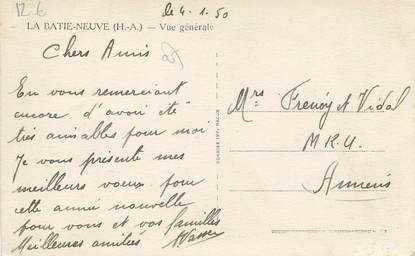 le 4.1.50
LA BATIE-NEUVE (H.-A.) — Vue générale
Chers Amis
En vous remerciant
encore d'avoir été
très aimables pour moi
Je vous présente mes
meilleurs voeux pour
cette année nouvelle
pour vous et vos familles
Meilleures amitiés
Mrs Frenoy et Vidal
M R U
Amiens